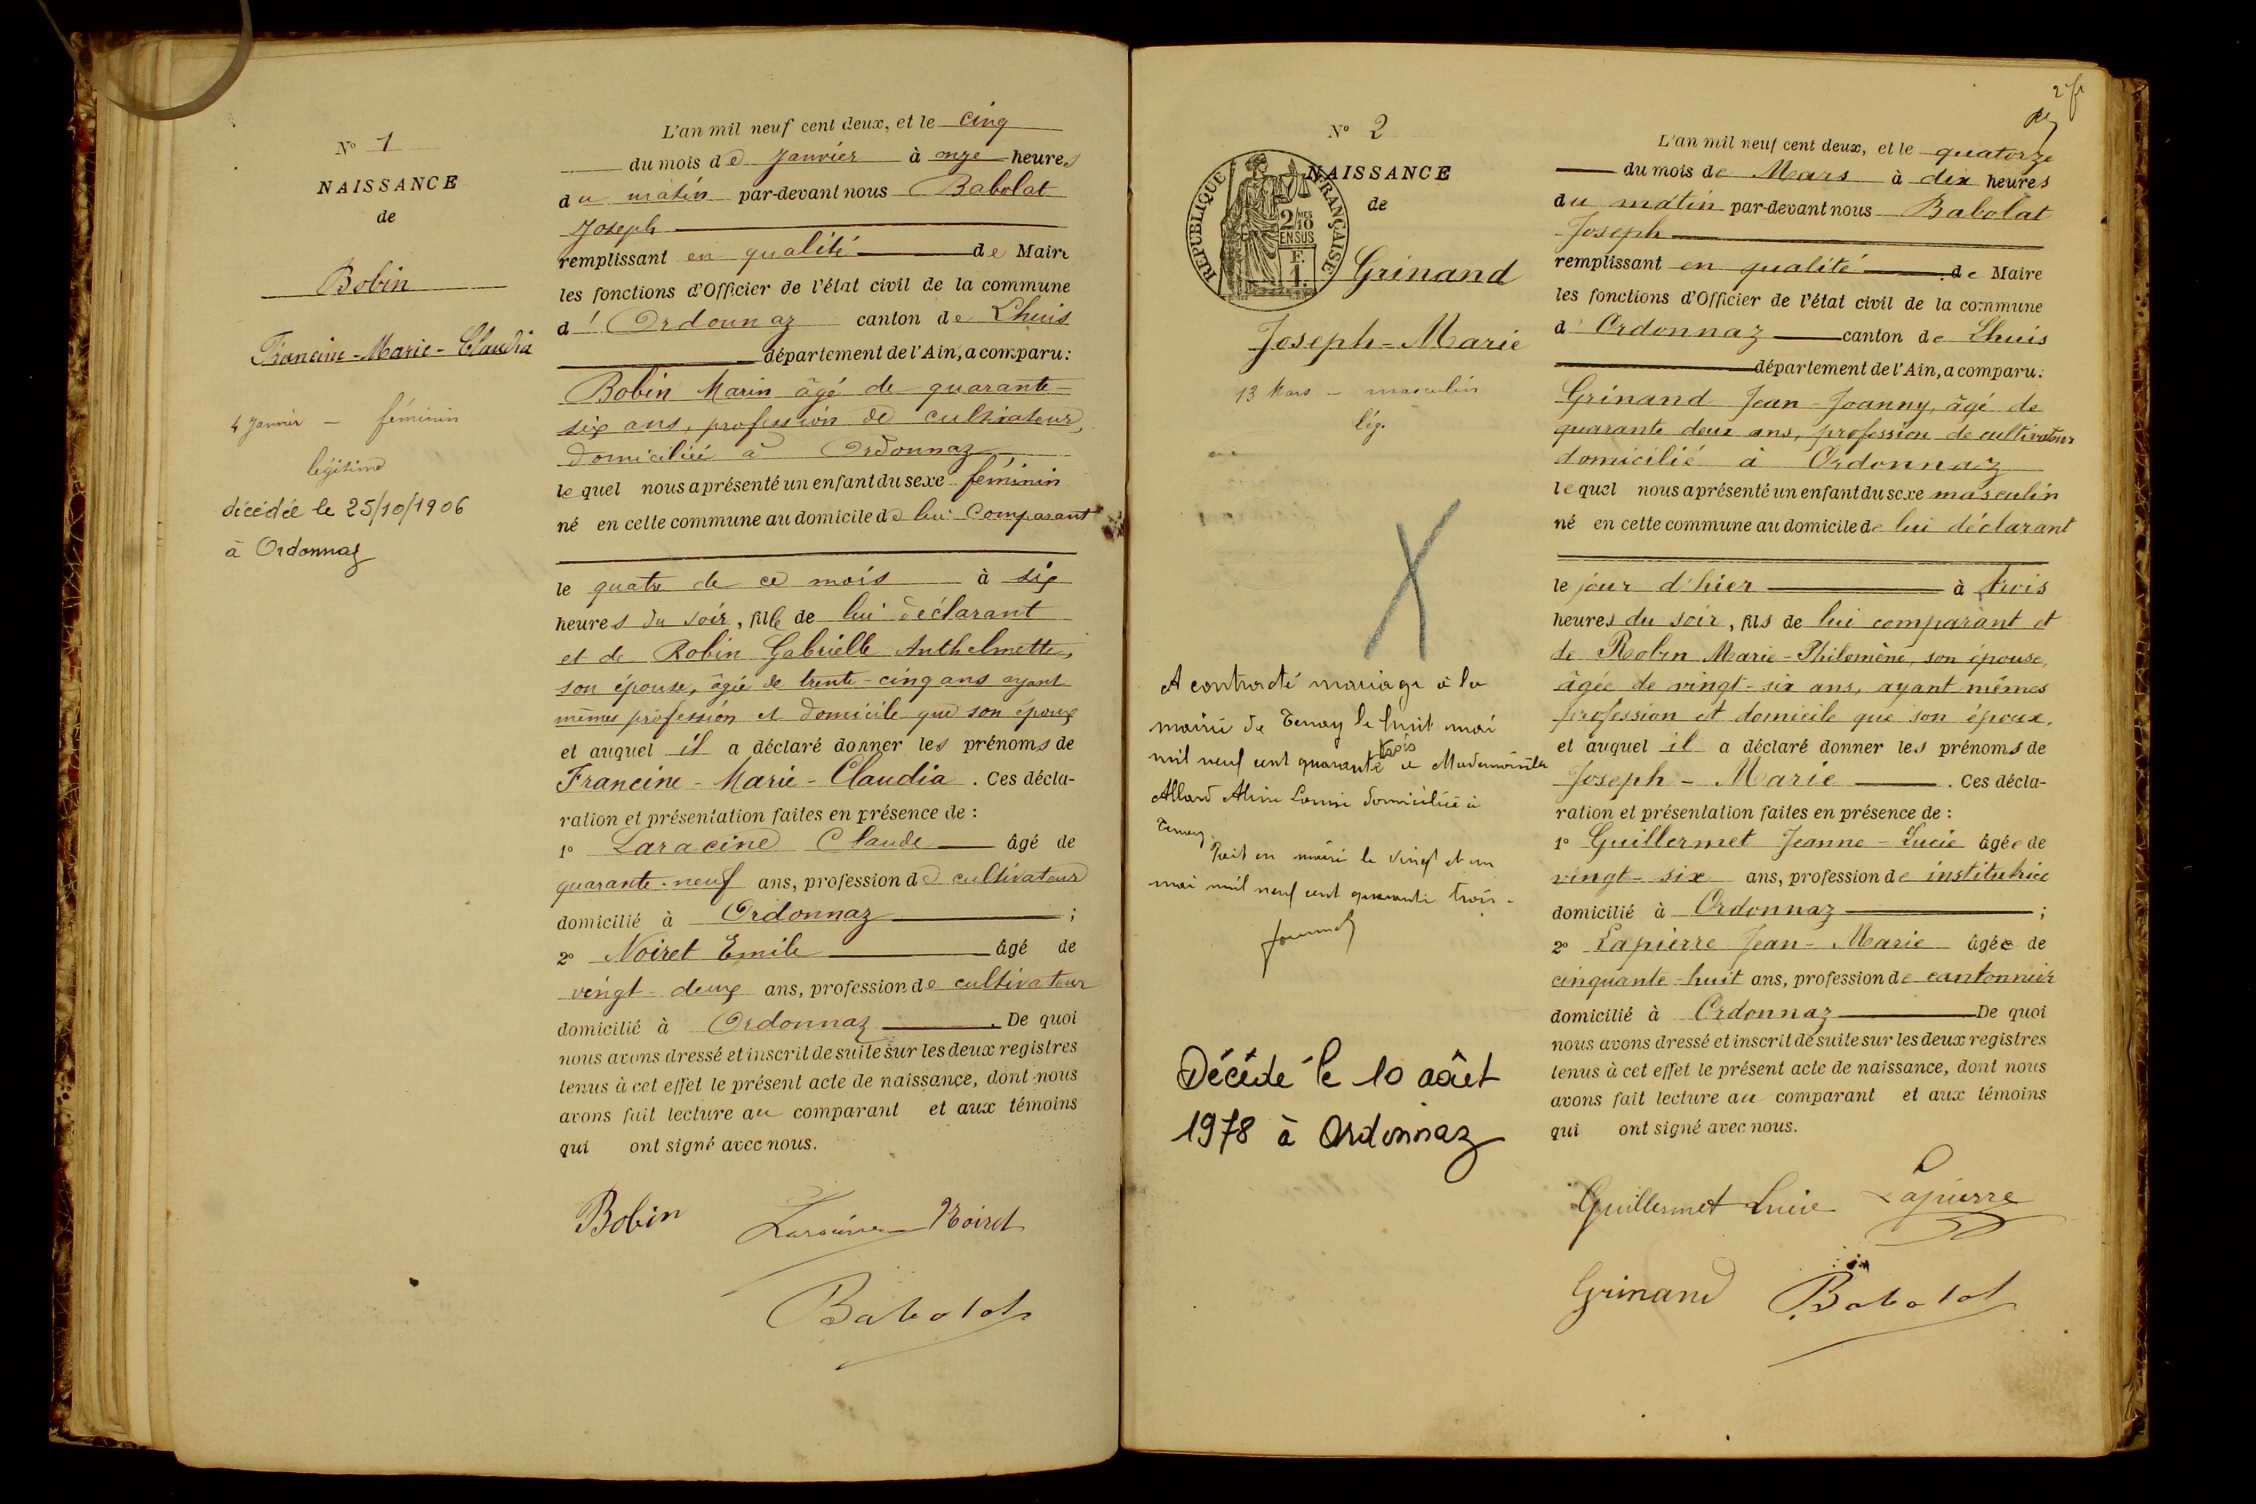 N° 1
NAISSANCE
de
Bobin
Francine-Marie-Claudia
4 Janvier — féminin
légitime
décédée le 25/10/1906
à Ordonnaz
L'an mil neuf cent deux, et le cinq
du mois de Janvier à onze heures
du matin par-devant nous Babolat
Joseph
remplissant en qualité de Maire
les fonctions d'Officier de l'état civil de la commune
d' Ordonnaz canton de Lhuis
département de l'Ain, a comparu:
Bobin Marin âgé de quarante-
six ans, profession de cultivateur,
domicilié à Ordonnaz
lequel nous a présenté un enfant du sexe féminin
né en cette commune au domicile de lui Comparant
le quatre de ce mois à six
heures du soir, fille de lui déclarant
et de Robin Gabrielle Anthelmette,
son épouse, âgée de trente-cinq ans ayant
mêmes profession et domicile que son époux
et auquel il a déclaré donner les prénoms de
Francine-Marie-Claudia. Ces décla-
ration et présentation faites en présence de :
1° Laracine Claude âgé de
quarante-neuf ans, profession de cultivateur
domicilié à Ordonnaz ;
2° Noiret Emile âgé de
vingt-deux ans, profession de cultivateur
domicilié à Ordonnaz. De quoi
nous avons dressé et inscrit de suite sur les deux registres
tenus à cet effet le présent acte de naissance, dont nous
avons fait lecture au comparant et aux témoins
qui ont signé avec nous.
Bobin Laracine Noiret
Babolat
N° 2
NAISSANCE
de
REPUBLIQUE FRANÇAISE
2/10 MES
EN SUS
F.
1.
Grinand
Joseph-Marie
13 Mars — masculin
lég.
A contracté mariage à la
mairie de Tenay le huit mai
mil neuf cent quarante trois à Mademoiselle
Allard Aline Louise domiciliée à
Tenay.
Fait en mairie le vingt et un
mai mil neuf cent quarante trois-
Décédé le 10 août
1978 à Ordonnaz
L'an mil neuf cent deux, et le quatorze
du mois de Mars à dix heures
du matin par-devant nous Babolat
Joseph
remplissant en qualité de Maire
les fonctions d'Officier de l'état civil de la commune
d' Ordonnaz canton de Lhuis
département de l'Ain, a comparu:
Grinand Jean-Joanny, âgé de
quarante deux ans, profession de cultivateur
domicilié à Ordonnaz
lequel nous a présenté un enfant du sexe masculin
né en cette commune au domicile de lui déclarant
le jour d'hier à trois
heures du soir, fils de lui comparant et
de Robin Marie-Philomène, son épouse,
âgée de vingt-six ans, ayant mêmes
profession et domicile que son époux.
et auquel il a déclaré donner les prénoms de
Joseph-Marie. Ces décla-
ration et présentation faites en présence de :
1° Guillermet Jeanne-Lucie âgée de
vingt-six ans, profession de institutrice
domicilié à Ordonnaz ;
2° Lapierre Jean-Marie âgé de
cinquante-huit ans, profession de cantonnier
domicilié à Ordonnaz De quoi
nous avons dressé et inscrit de suite sur les deux registres
tenus à cet effet le présent acte de naissance, dont nous
avons fait lecture au comparant et aux témoins
qui ont signé avec nous.
Guillermet Lucie Lapierre
Grinand Babolat